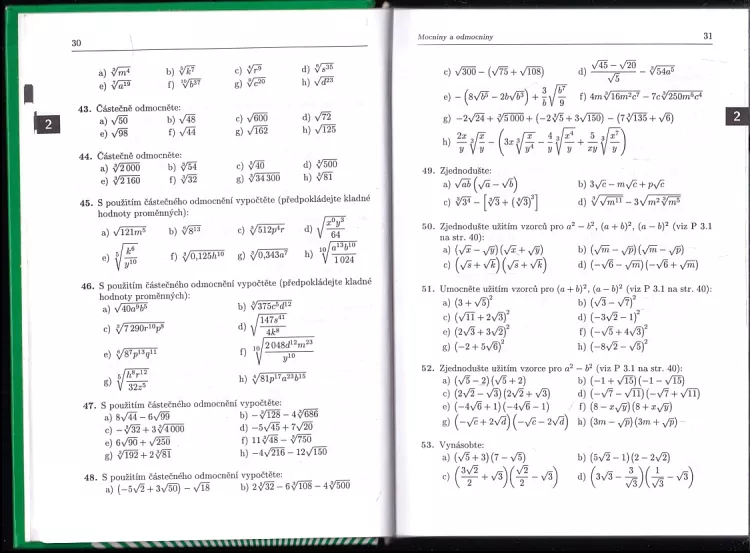 30
a) ∛m⁴ b) ∜k⁷ c) ∜r⁵ d) ⁸√s³⁵
e) ⁷√a¹⁹ f) ¹⁰√b³⁷ g) ⁹√c²⁰ h) √d²³
43. Částečně odmocněte:
a) √50 b) √48 c) √600 d) √72
e) √98 f) √44 g) √162 h) √125
44. Částečně odmocněte:
a) ∛2 000 b) ∛54 c) ∛40 d) ∛500
e) ∛2 160 f) ∛32 g) ∛34 300 h) ∛81
45. S použitím částečného odmocnění vypočtěte (předpokládejte kladné
hodnoty proměnných):
a) √121m⁵ b) ⁵√8¹³ c) ∛512p⁴r d) √(x⁰y³/64)
e) ⁵√(k⁶/y¹⁰) f) ∛0,125b¹⁰ g) ∛0,343a⁷ h) ¹⁰√(a¹³b¹⁰/1 024)
46. S použitím částečného odmocnění vypočtěte (předpokládejte kladné
hodnoty proměnných):
a) √40a⁹b⁵ b) ∛375c⁵d¹²
c) ∛7 290r¹⁰p⁸ d) √(147s⁴¹/4k⁸)
e) ⁶√8⁷p¹³q¹¹ f) ¹⁰√(2 048d¹²m²³/y¹⁰)
g) ⁵√(h⁸r¹²/32z⁵) h) ∜81p¹⁷a²³b¹⁵
47. S použitím částečného odmocnění vypočtěte:
a) 8√44 − 6√99 b) −∛128 − 4∛686
c) −∛32 + 3∛4 000 d) −5√45 + 7√20
e) 6√90 + √250 f) 11∛48 − ∛750
g) ∛192 + 2∛81 h) −4√216 − 12√150
48. S použitím částečného odmocnění vypočtěte:
a) (−5√2 + 3√50) − √18 b) 2∛32 − 6∛108 − 4∛500
2
Mocniny a odmocniny 31
c) √300 − (√75 + √108) d) (√45 − √20)/√5 − ∛54a⁵
e) −(8√b⁵ − 2b√b³) + (3/b)√(b⁷/9) f) 4m∛16m²c⁷ − 7c∛250m⁵c⁴
g) −2√24 + ∛5 000 + (−2∛5 + 3√150) − (7∛135 + √6)
h) (2x/y)∛(x/y) − (3x∛(x/y⁴) − (4/y)∛(x⁴/y) + (5/xy)∛(x⁷/y))
49. Zjednodušte:
a) √ab(√a − √b) b) 3√c − m√c + p√c
c) ∛3⁴ − [∛3 + (∛3)²] d) ∜√m¹¹ − 3√m²∜m⁵
50. Zjednodušte užitím vzorců pro a² − b², (a + b)², (a − b)² (viz P 3.1
na str. 40):
a) (√x − √y)(√x + √y) b) (√m − √p)(√m − √p)
c) (√s + √k)(√s + √k) d) (−√6 − √m)(−√6 + √m)
51. Umocněte užitím vzorců pro (a + b)², (a − b)² (viz P 3.1 na str. 40):
a) (3 + √5)² b) (√3 − √7)²
c) (√11 + 2√3)² d) (−3√2 − 1)²
e) (2√3 + 3√2)² f) (−√5 + 4√3)²
g) (−2 + 5√6)² h) (−8√2 − √5)²
52. Zjednodušte užitím vzorce pro a² − b² (viz P 3.1 na str. 40):
a) (√5 − 2)(√5 + 2) b) (−1 + √15)(−1 − √15)
c) (2√2 − √3)(2√2 + √3) d) (−√7 − √11)(−√7 + √11)
e) (−4√6 + 1)(−4√6 − 1) f) (8 − x√y)(8 + x√y)
g) (−√c + 2√d)(−√c − 2√d) h) (3m − √p)(3m + √p)
53. Vynásobte:
a) (√5 + 3)(7 − √5) b) (5√2 − 1)(2 − 2√2)
c) (3√2/2 + √3)(√2/2 − √3) d) (3√3 − 3/√3)(1/√3 − √3)
2